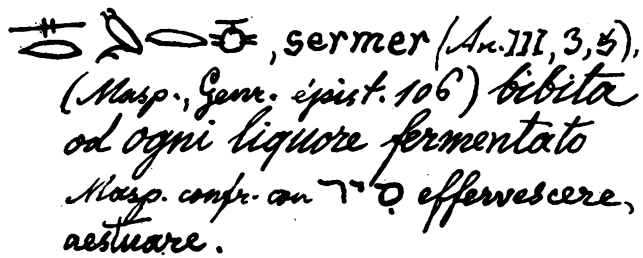 , sermer (An. III, 3, 5),
(Masp., Genr. épist. 106) bibita
od ogni liquore fermentato
Masp. confr. con effervescere,
aestuare.